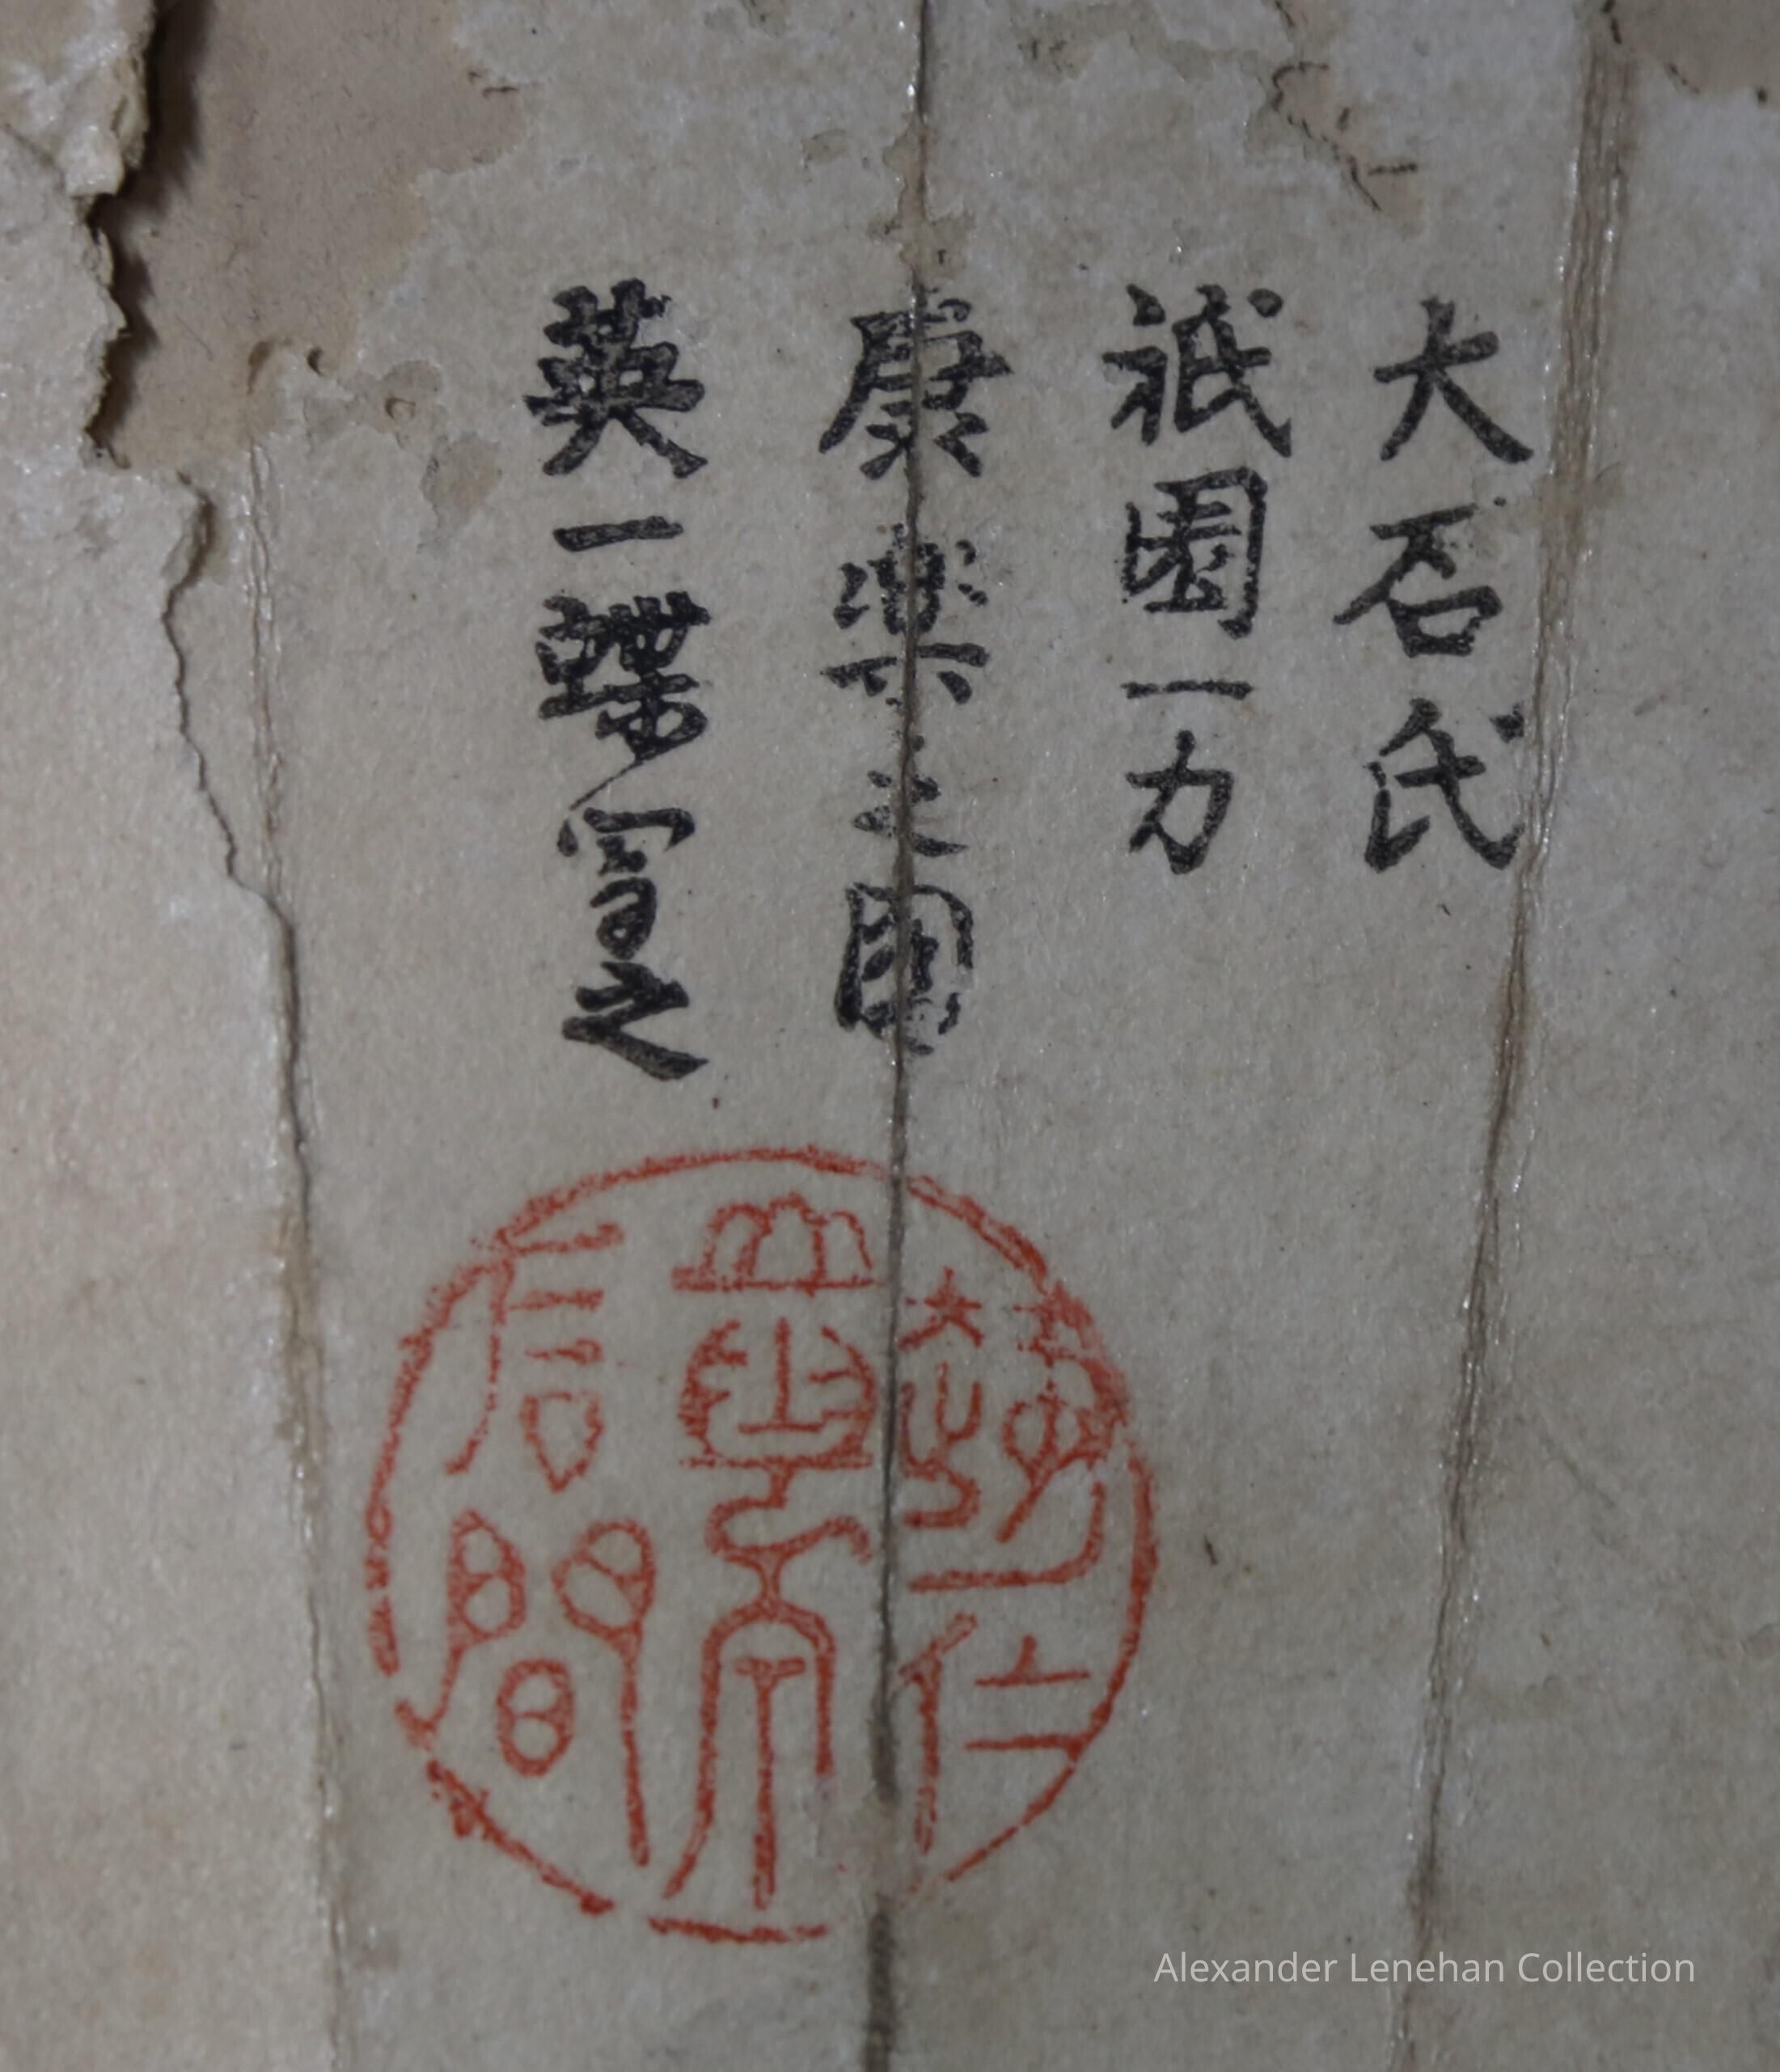 大石氏
祇園一力
康樂之圖
英一蝶写之
Alexander Lenehan Collection